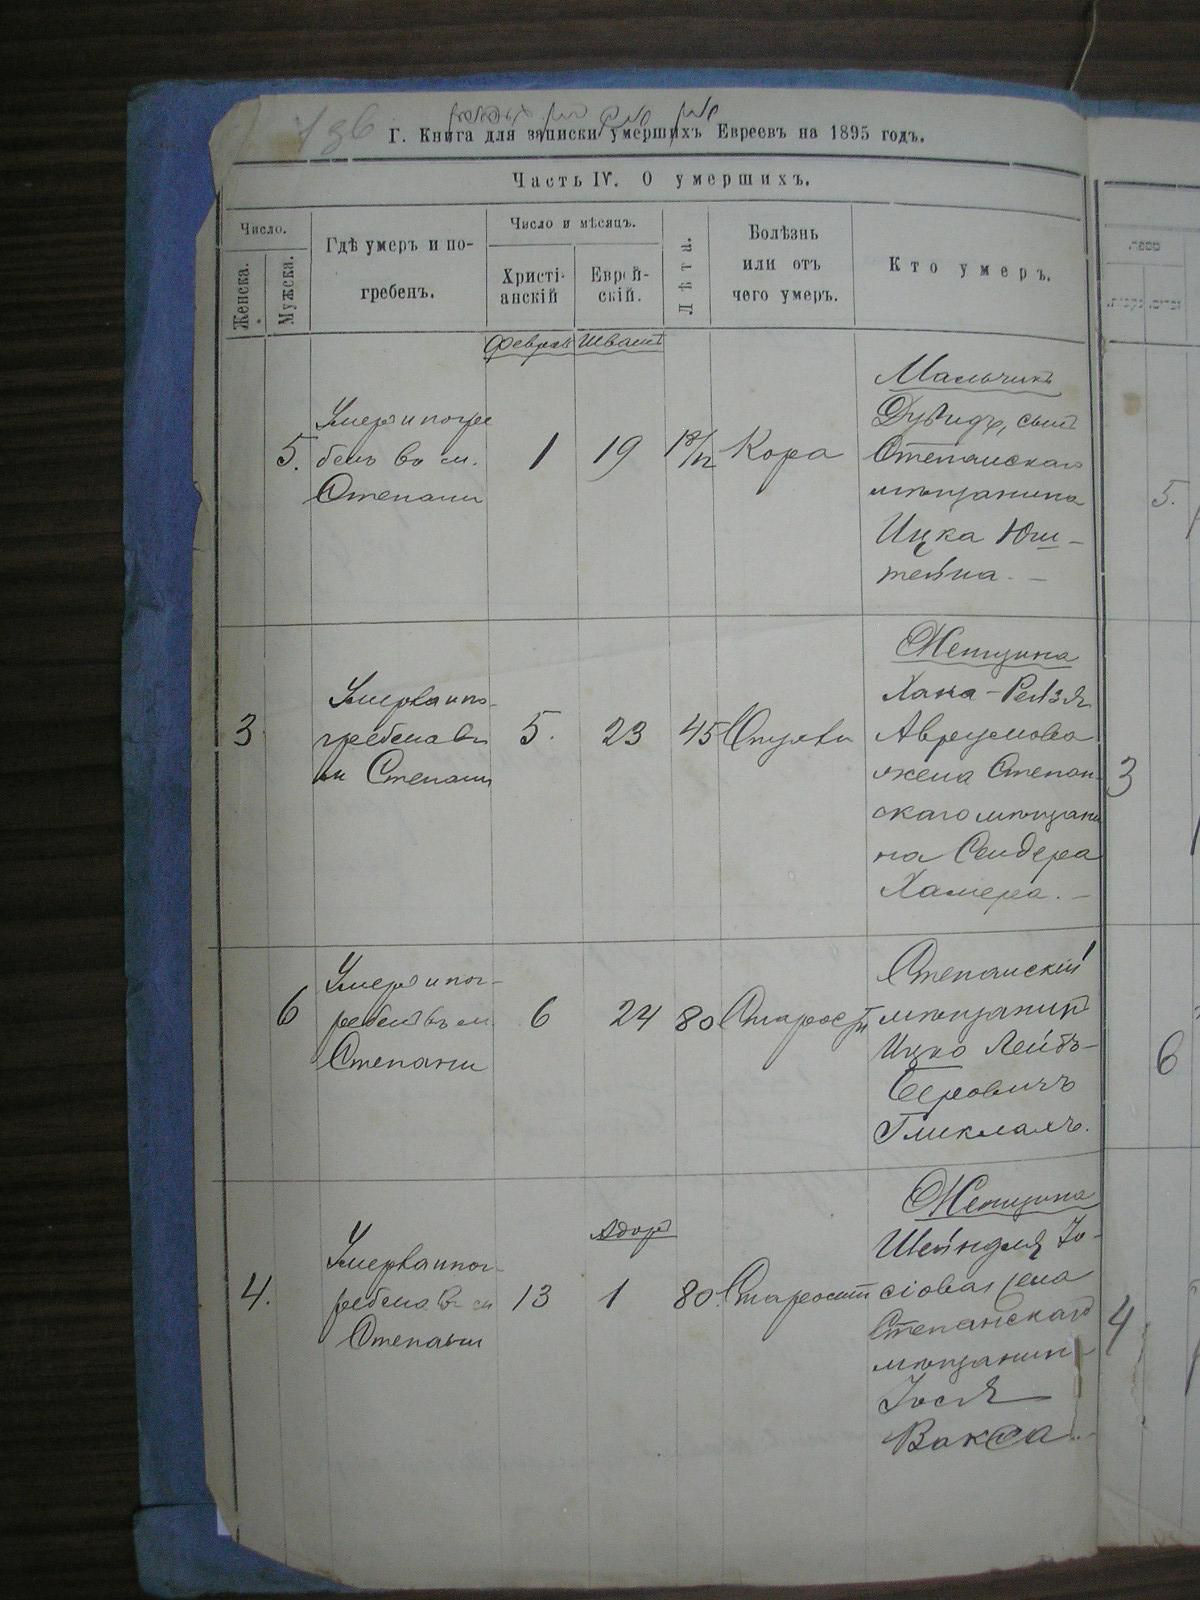 Г. Книга для записки умершихъ Евреевъ на 1895 годъ.
Часть IV. О умершихъ.
Число.
Женска.
Мужска.
Гдѣ умеръ и по-
гребенъ.
Число и мѣсяцъ.
Христі-
анскій
Еврей-
скій.
Лѣта.
Болѣзнь
или отъ
чего умеръ.
Кто умеръ.
Февраль
Шватъ
5.
Умеръ и погре
бенъ въ м.
Степани
1
19
Кора
Мальчикъ
Дувидъ, сынъ
Степанскаго
мѣщанина
Ицка Юш-
тейна. –
5.
3
Умерла и по-
гребена въ
м Степани
5.
23
45
Опухли
Женщина
Хана-Рейзя
Аврумова
жена Степан-
скаго мѣщани
на Сендера
Хамера. –
3
6
Умеръ и пог-
ребенъ въ м.
Степани
6
24
80
Старость
Степанскій
мѣщанинъ
Ицко Лейбъ-
Беровичъ
6
Адаръ
4.
Умерла и пог-
ребена въ м
Степани
13
1
80.
Старость
Женщина
Шейндля Іо-
сіова жена
Степанскаго
мѣщанина
Іося
Вакса. –
4